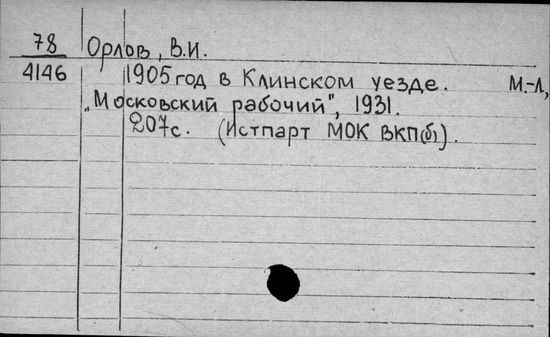 78 Орлов, В.И.
4146 1905 год в Клинском уезде. М.-Л,
„Московский рабочий", 1931.
207с. (Истпарт МОК ВКП(б).